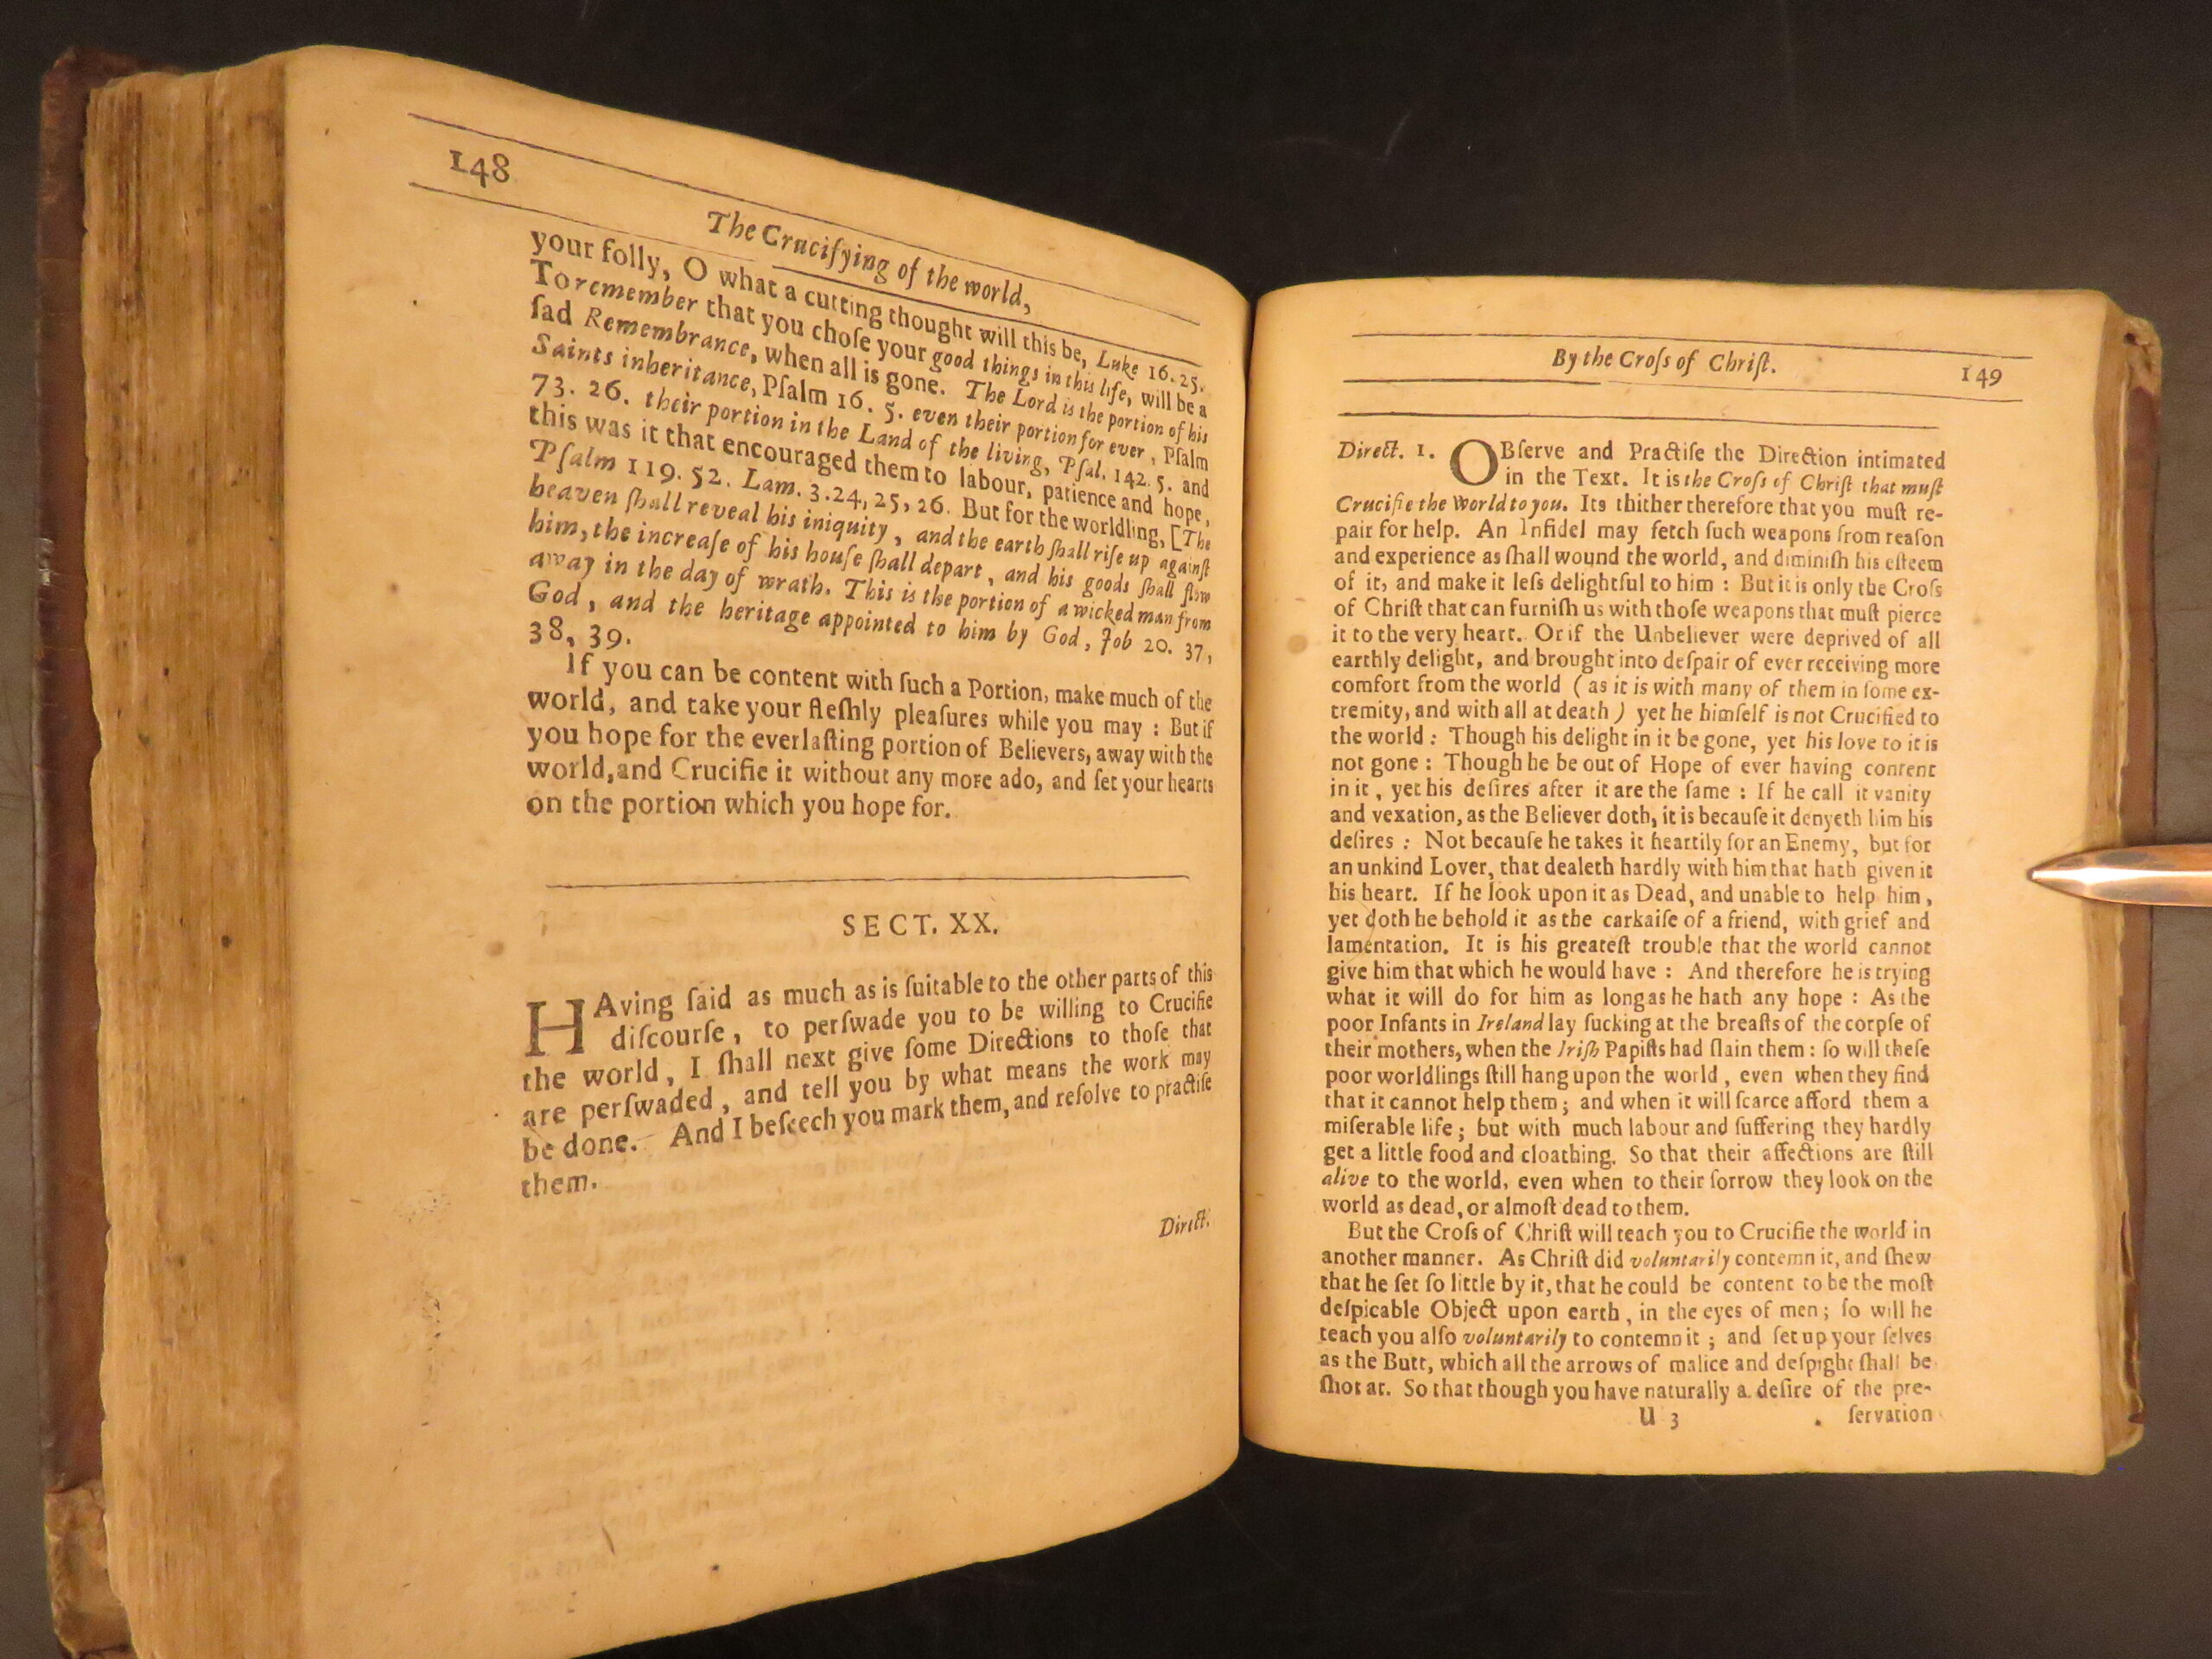 148
The Crucifying of the world,
your folly, O what a cutting thought will this be, Luke 16.25.
To remember that you choſe your good things in this life, will be a
ſad Remembrance, when all is gone. The Lord is the portion of his
Saints inheritance, Pſalm 16. 5. even their portion for ever, Pſalm
73. 26. their portion in the Land of the living, Pſal. 142. 5. and
this was it that encouraged them to labour, patience and hope,
Pſalm 119. 52. Lam. 3.24, 25, 26. But for the worldling, [The
heaven ſhall reveal his iniquity, and the earth ſhall riſe up againſt
him, the increaſe of his houſe ſhall depart, and his goods ſhall flow
away in the day of wrath. This is the portion of a wicked man from
God, and the heritage appointed to him by God, Job 20. 37,
38, 39.
If you can be content with ſuch a Portion, make much of the
world, and take your fleſhly pleaſures while you may : But if
you hope for the everlaſting portion of Believers, away with the
world, and Crucifie it without any more ado, and ſet your hearts
on the portion which you hope for.
SECT. XX.
HAving ſaid as much as is ſuitable to the other parts of this
diſcourſe, to perſwade you to be willing to Crucifie
the world, I ſhall next give ſome Directions to thoſe that
are perſwaded, and tell you by what means the work may
be done. And I beſeech you mark them, and reſolve to practiſe
them.
Direct.
By the Croſs of Chriſt.
149
Direct. 1. OBſerve and Practiſe the Direction intimated
in the Text. It is the Croſs of Chriſt that muſt
Crucifie the World to you. Its thither therefore that you muſt re-
pair for help. An Infidel may fetch ſuch weapons from reaſon
and experience as ſhall wound the world, and diminiſh his eſteem
of it, and make it leſs delightful to him : But it is only the Croſs
of Chriſt that can furniſh us with thoſe weapons that muſt pierce
it to the very heart. Or if the Unbeliever were deprived of all
earthly delight, and brought into deſpair of ever receiving more
comfort from the world ( as it is with many of them in ſome ex-
tremity, and with all at death ) yet he himſelf is not Crucified to
the world : Though his delight in it be gone, yet his love to it is
not gone : Though he be out of Hope of ever having content
in it, yet his deſires after it are the ſame : If he call it vanity
and vexation, as the Believer doth, it is becauſe it denyeth him his
deſires : Not becauſe he takes it heartily for an Enemy, but for
an unkind Lover, that dealeth hardly with him that hath given it
his heart. If he look upon it as Dead, and unable to help him,
yet doth he behold it as the carkaiſe of a friend, with grief and
lamentation. It is his greateſt trouble that the world cannot
give him that which he would have : And therefore he is trying
what it will do for him as long as he hath any hope : As the
poor Infants in Ireland lay ſucking at the breaſts of the corpſe of
their mothers, when the Iriſh Papiſts had ſlain them : ſo will theſe
poor worldlings ſtill hang upon the world, even when they find
that it cannot help them ; and when it will ſcarce afford them a
miſerable life ; but with much labour and ſuffering they hardly
get a little food and cloathing. So that their affections are ſtill
alive to the world, even when to their ſorrow they look on the
world as dead, or almoſt dead to them.
But the Croſs of Chriſt will teach you to Crucifie the world in
another manner. As Chriſt did voluntarily contemn it, and ſhew
that he ſet ſo little by it, that he could be content to be the moſt
deſpicable Object upon earth, in the eyes of men ; ſo will he
teach you alſo voluntarily to contemn it ; and ſet up your ſelves
as the Butt, which all the arrows of malice and deſpight ſhall be
ſhot at. So that though you have naturally a deſire of the pre-
U 3
ſervation